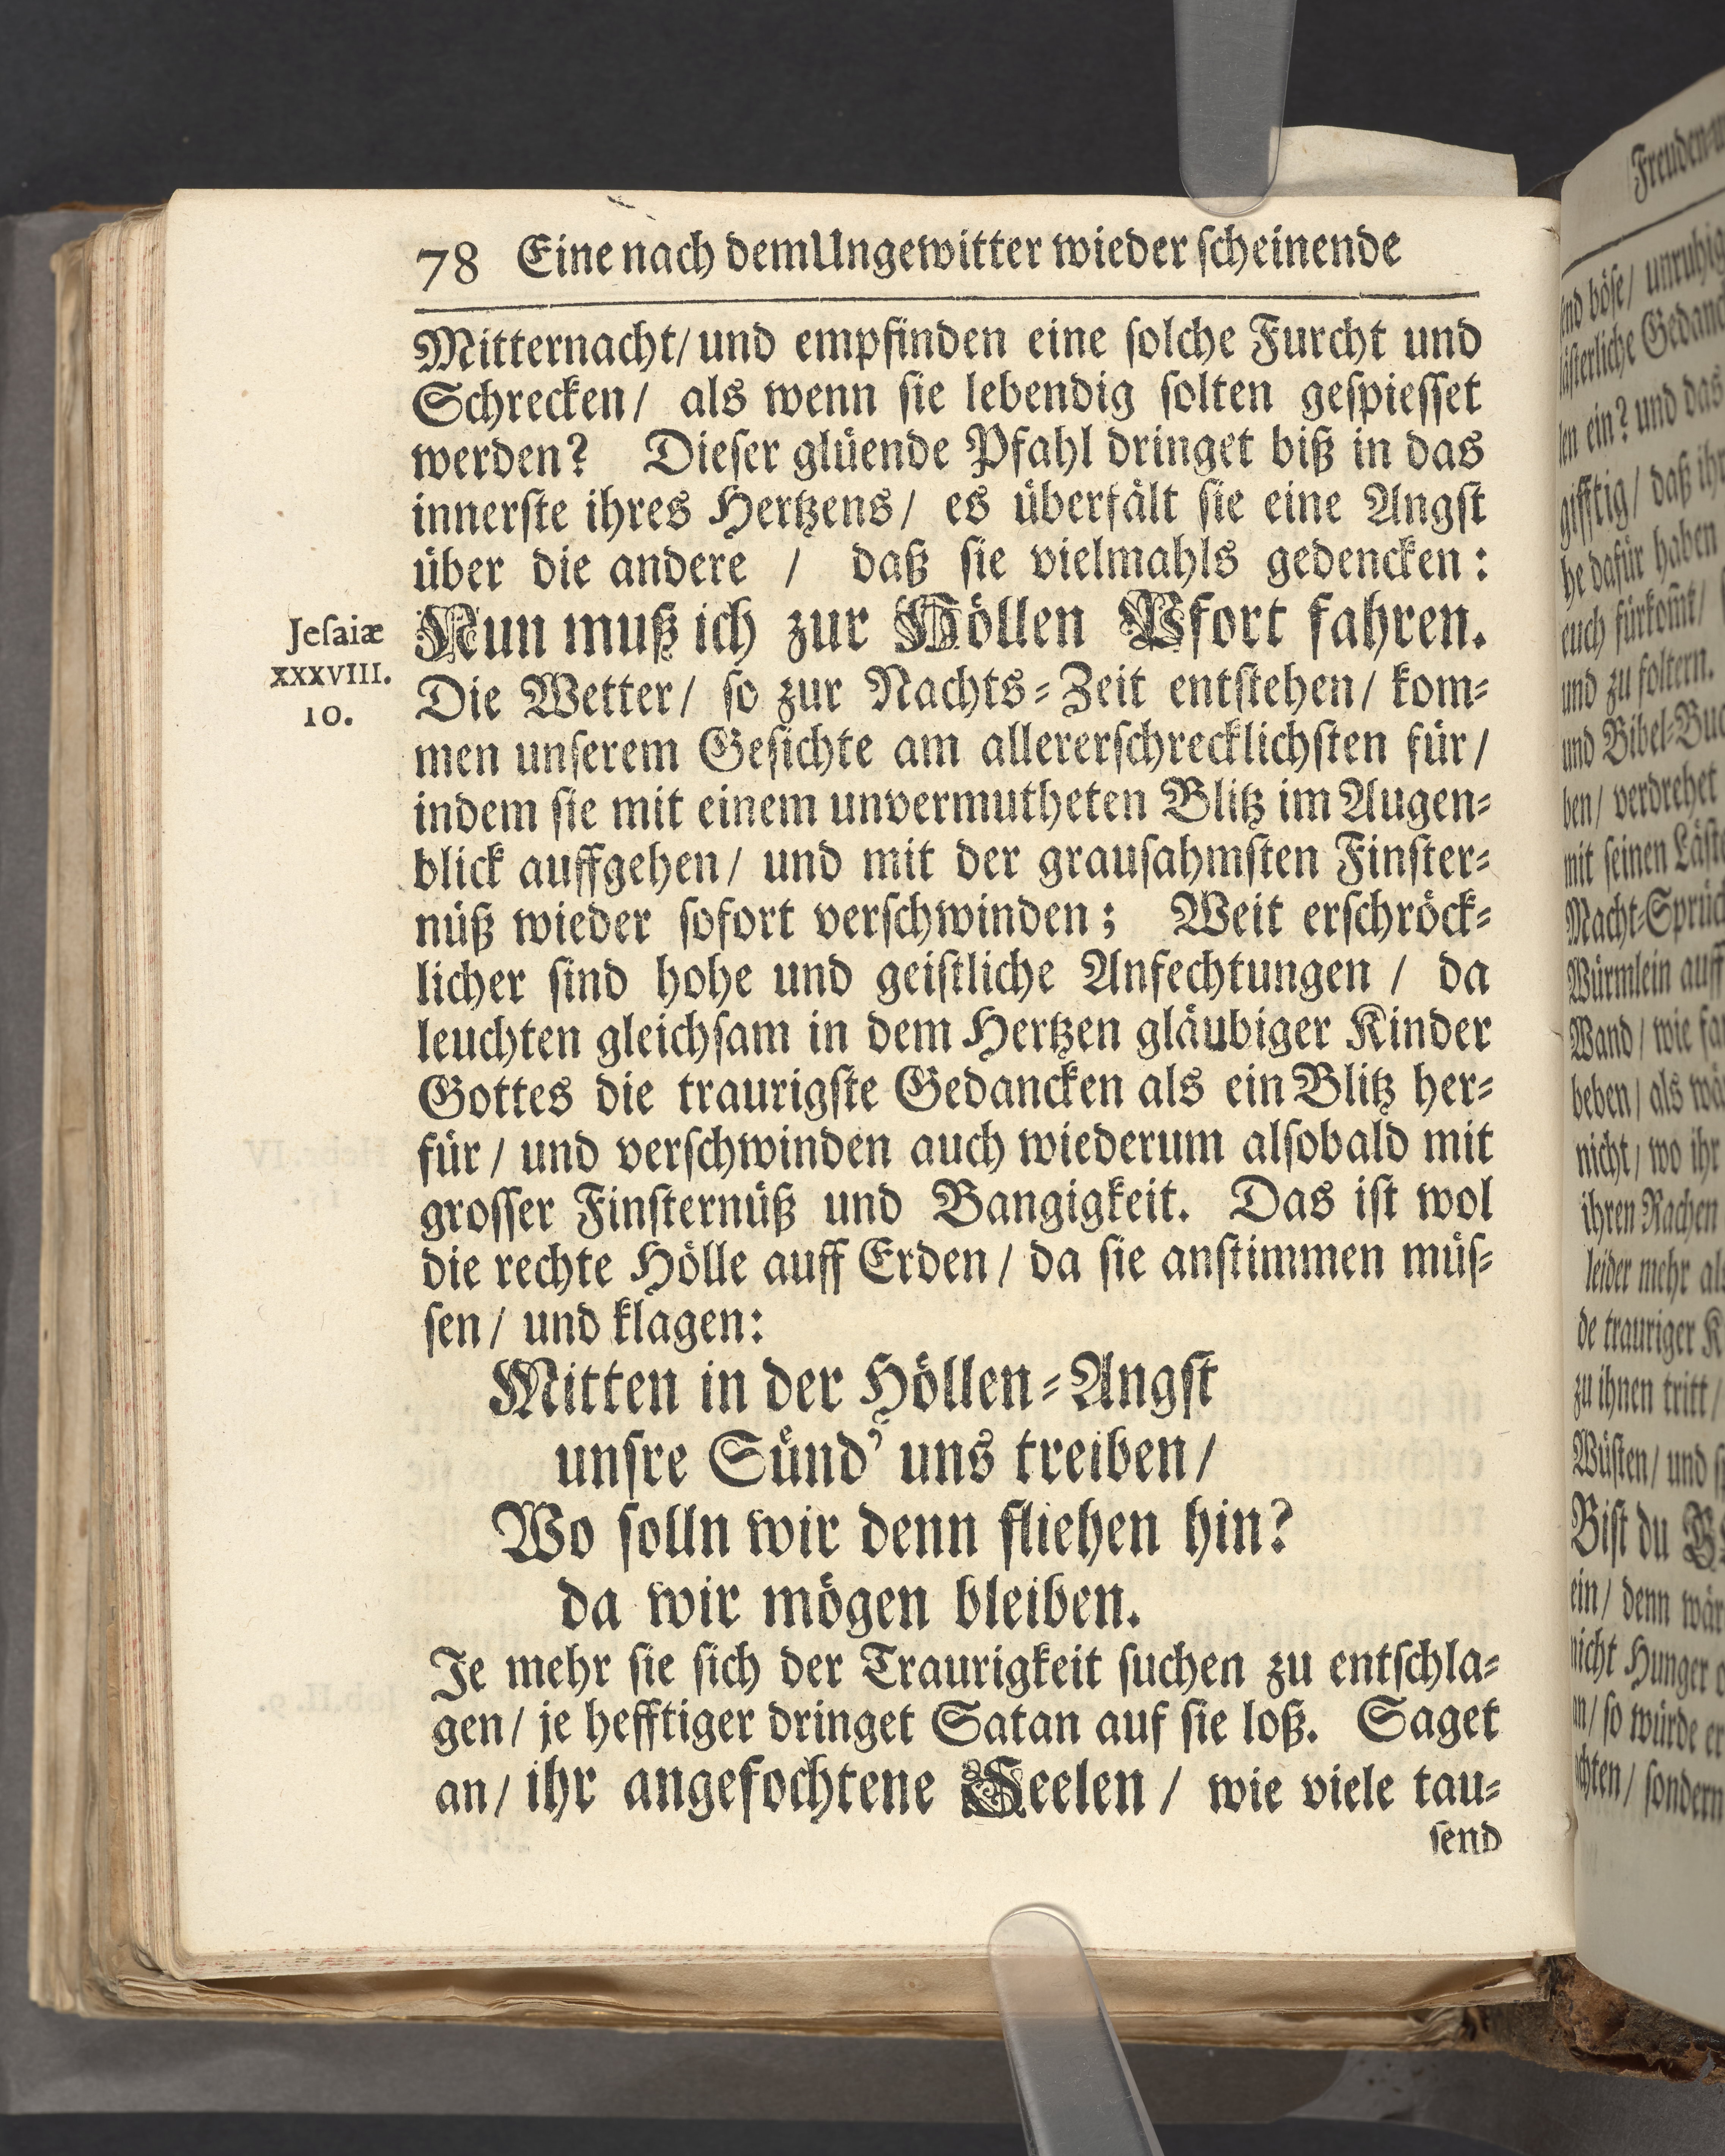 78 Eine nach dem Ungewitter wieder scheinende
Mitternacht/ und empfinden eine solche Furcht und
Schrecken/ als wenn sie lebendig solten gespiesset
werden? Dieser glüende Pfahl dringet biß in das
innerste ihres Hertzens/ es überfält sie eine Angst
über die andere / daß sie vielmahls gedencken:
Nun muß ich zur Höllen Pfort fahren.
Jesaiæ
XXXVIII.
10.
Die Wetter/ so zur Nachts-Zeit entstehen/ kom-
men unserem Gesichte am allererschrecklichsten für/
indem sie mit einem unvermutheten Blitz im Augen-
blick auffgehen/ und mit der grausahmsten Finster-
nüß wieder sofort verschwinden; Weit erschröck-
licher sind hohe und geistliche Anfechtungen / da
leuchten gleichsam in dem Hertzen gläubiger Kinder
Gottes die traurigste Gedancken als ein Blitz her-
für/ und verschwinden auch wiederum alsobald mit
grosser Finsternüß und Bangigkeit. Das ist wol
die rechte Hölle auff Erden/ da sie anstimmen müs-
sen/ und klagen:
Mitten in der Höllen-Angst
unsre Sünd' uns treiben/
Wo solln wir denn fliehen hin?
da wir mögen bleiben.
Je mehr sie sich der Traurigkeit suchen zu entschla-
gen/ je hefftiger dringet Satan auf sie loß. Saget
an/ ihr angefochtene Seelen/ wie viele tau-
send
Freuden
böse/ unruhig
Gedanc
ein? und das
gifftig/ daß ihr
dafür haben
euch fürkomt/
und zu foltern.
und Bibel-Buc
verdrehet
mit seinen Läst
Macht-Sprüc
Würmlein auff
Wand/ wie
beben/ als wä
nicht/ wo ihr
ihren Rachen
leider mehr al
de trauriger K
zu ihnen tritt/
Wüsten/ und
Bist du
ein/ denn wär
nicht Hunger
so würde er
sondern